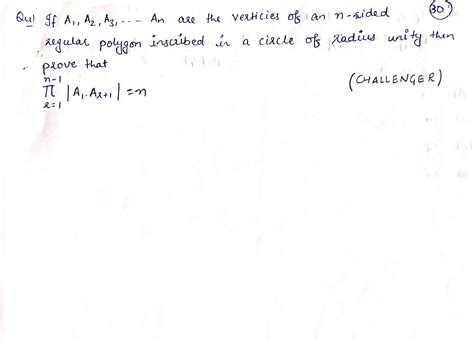 Qu1 If A₁, A₂, A₃, --- An are the verticies of an n-sided (30)
regular polygon inscribed in a circle of radius unity then
prove that
n-1
π |A₁.Aᵣ₊₁| = n
r=1
(CHALLENGER)